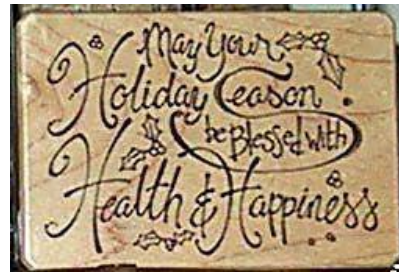 May Your
Holiday Season
be Blessed with
Health & Happiness